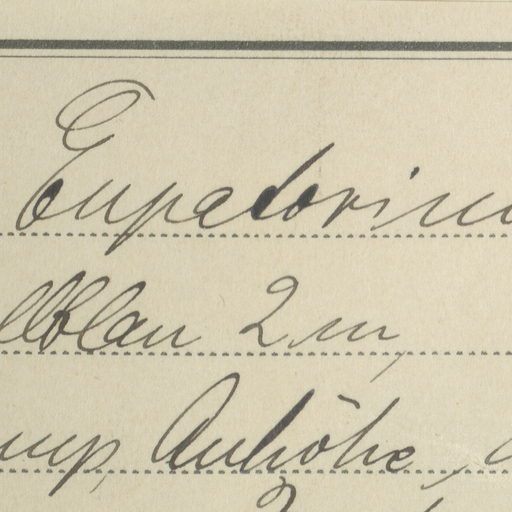 Eupatorium
llblau 2 m,
ump, Anhöhe,